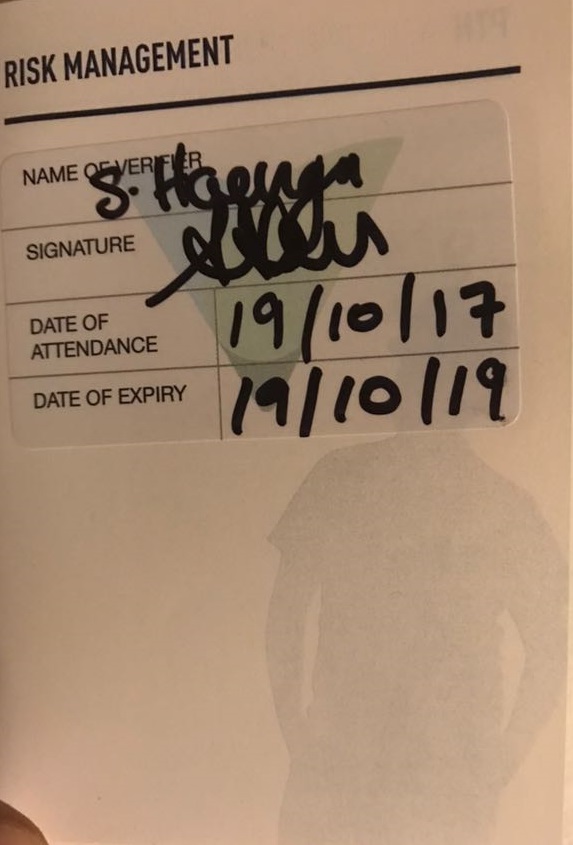 RISK MANAGEMENT
NAME OF VERIFIER
S. Haenga
SIGNATURE
DATE OF
ATTENDANCE
19/10/17
DATE OF EXPIRY
19/10/19